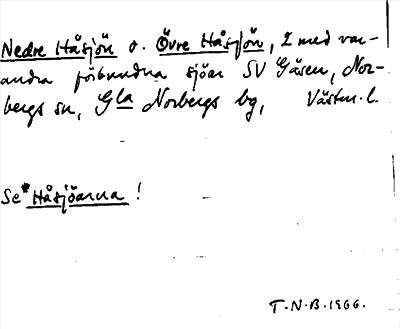 Nedre Håsjön o. Övre Håsjön, 2 med var-
andra förbundna sjöar SV Gåsen, Nor-
bergs sn, Gla Norbergs bg, Västm. l.
Se *Håsjöarna !
T.N.B. 1966.